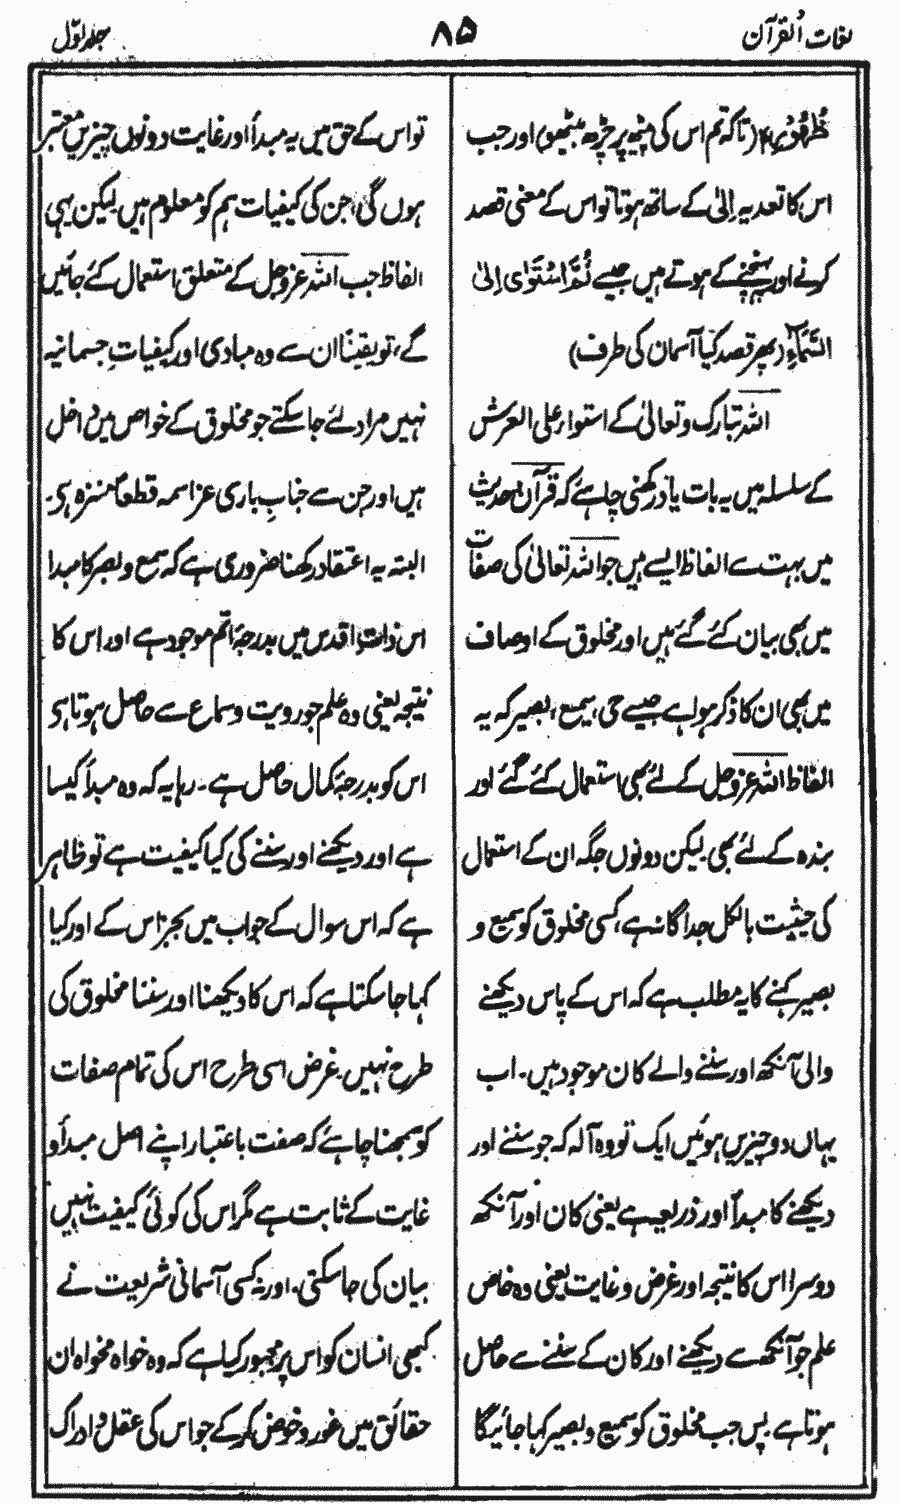 لغات القرآن
۸۵
جلد اول
ظُهُوْرِهٖ (تاکہ تم اس کی پیٹھ پر چڑھ بیٹھو) اور جب
اس کا تعدیہ اِلیٰ کے ساتھ ہوتا تو اس کے معنی قصد
کرنے اور پہنچنے کے ہوتے ہیں جیسے ثُمَّ اسْتَوٰی اِلیٰ
السَّمَآءِ (پھر قصد کیا آسمان کی طرف)
اللہ تبارک و تعالیٰ کے استواء علی العرش
کے سلسلہ میں یہ بات یاد رکھنی چاہئے کہ قرآن و حدیث
میں بہت سے الفاظ ایسے ہیں جو اللہ تعالیٰ کی صفات
میں بھی بیان کئے گئے ہیں اور مخلوق کے اوصاف
میں بھی ان کا ذکر ہوا ہے جیسے حی، سمیع، بصیر کہ یہ
الفاظ اللہ عزوجل کے لئے بھی استعمال کئے گئے اور
بندہ کے لئے بھی۔ لیکن دونوں جگہ ان کے استعمال
کی حیثیت بالکل جداگانہ ہے، کسی مخلوق کو سمیع و
بصیر کہنے کا یہ مطلب ہے کہ اس کے پاس دیکھنے
والی آنکھ اور سننے والے کان موجود ہیں۔ اب
یہاں دو چیزیں ہوئیں ایک تو وہ آلہ کہ جو سننے اور
دیکھنے کا مبدأ اور ذریعہ ہے یعنی کان اور آنکھ
دوسرا اس کا نتیجہ اور غرض و غایت یعنی وہ خاص
علم جو آنکھ سے دیکھنے اور کان کے سننے سے حاصل
ہوتا ہے پس جب مخلوق کو سمیع و بصیر کہا جائیگا
تو اس کے حق میں یہ مبدأ اور غایت دونوں چیزیں معتبر
ہوں گی، جن کی کیفیات ہم کو معلوم ہیں لیکن یہی
الفاظ جب اللہ عزوجل کے متعلق استعمال کئے جائیں
گے، تو یقیناً ان سے وہ مبادی اور کیفیاتِ جسمانیہ
نہیں مراد لئے جا سکتے جو مخلوق کے خواص میں داخل
ہیں اور جن سے جنابِ باری عز اسمہ قطعاً منزہ ہی۔
البتہ یہ اعتقاد رکھنا ضروری ہے کہ سمع و بصر کا مبدا
اس ذات اقدس میں بدرجۂ اتم موجود ہے اور اس کا
نتیجہ یعنی وہ علم جو رویت و سماع سے حاصل ہوتا ہی
اس کو بدرجۂ کمال حاصل ہے۔ رہا یہ کہ وہ مبدأ کیسا
ہے اور دیکھنے اور سننے کی کیا کیفیت ہے تو ظاہر
ہے کہ اس سوال کے جواب میں بجز اس کے اور کیا
کہا جا سکتا ہے کہ اس کا دیکھنا اور سننا مخلوق کی
طرح نہیں۔ غرض اسی طرح اس کی تمام صفات
کو سمجھنا چاہئے کہ صفت باعتبار اپنے اصل مبدأ و
غایت کے ثابت ہے مگر اس کی کوئی کیفیت نہیں
بیان کی جا سکتی۔ اور نہ کسی آسمانی شریعت نے
کبھی انسان کو اس پر مجبور کیا ہے کہ وہ خواہ مخواہ ان
حقائق میں غور و خوض کر کے جو اس کی عقل و ادراک